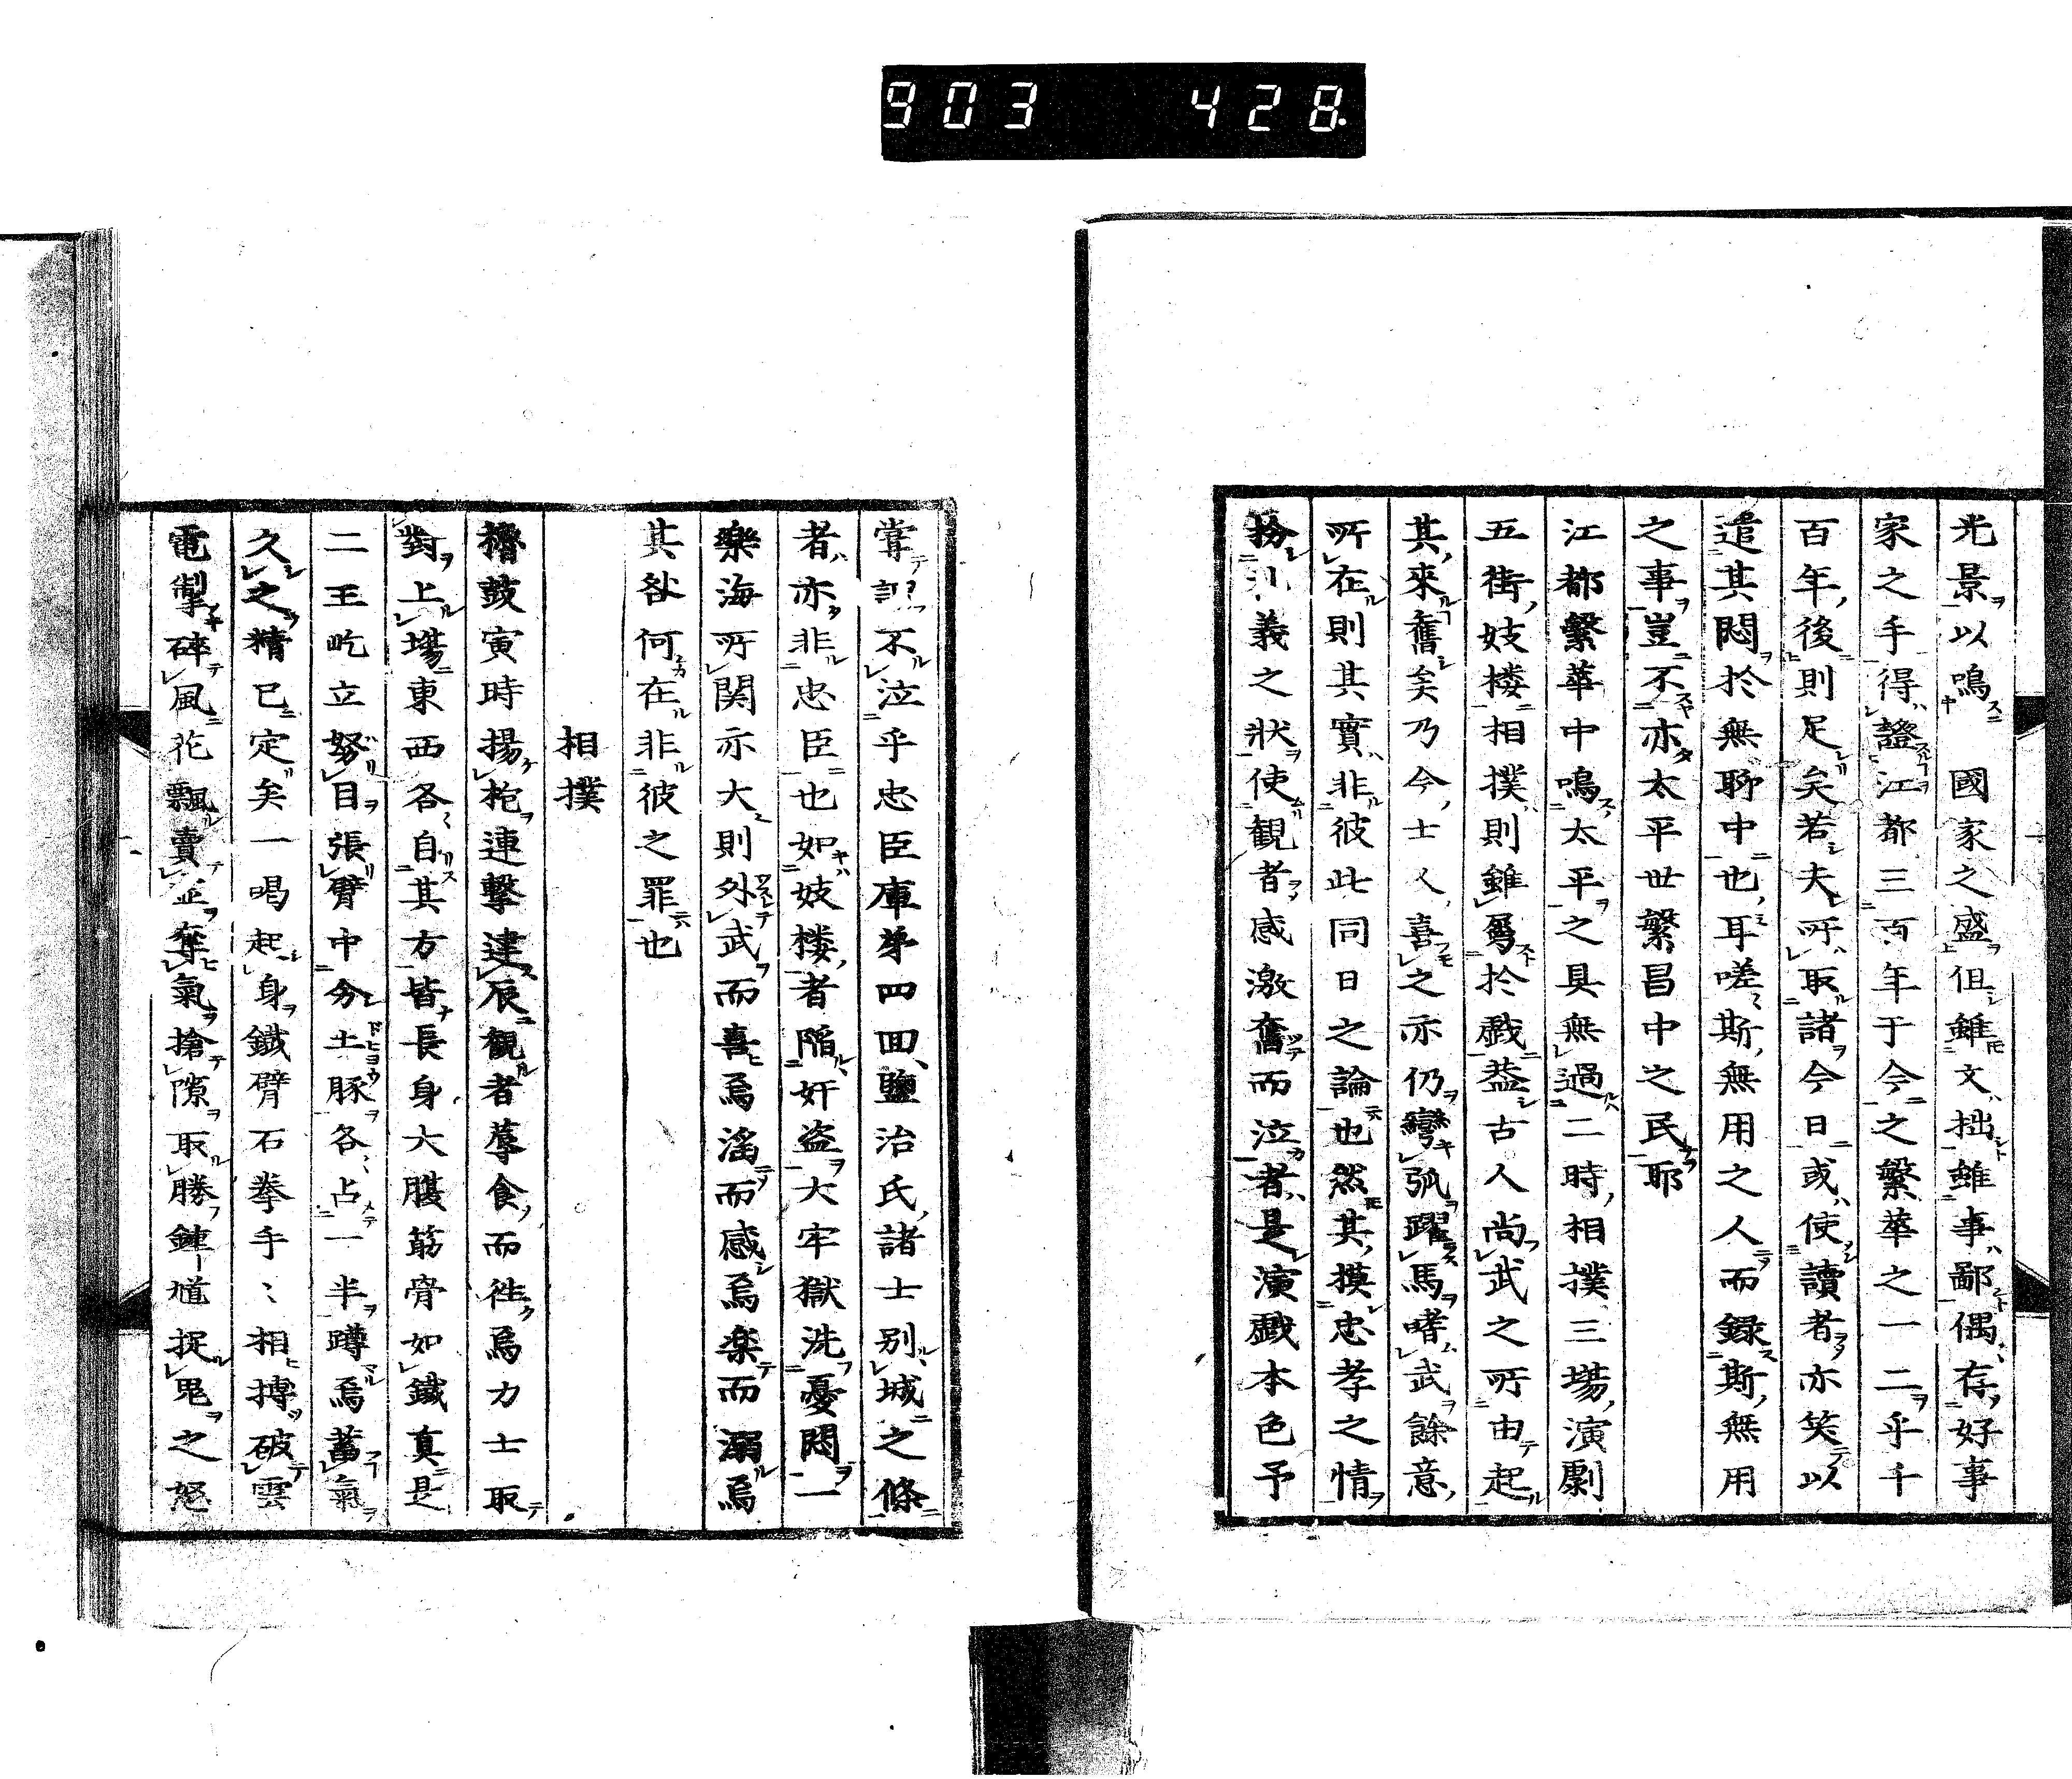 903 428
光景以鳴 國家之盛但雖文拙雖事鄙偶存好事
家之手得證江都三百年于今之繁華之一二乎千
百年後則足矣若夫所取諸今日或使讀者亦笑以
遣其悶於無聊中也耳嗟斯無用之人而録斯無用
之事豈不亦太平世繁昌中之民耶
江都繁華中鳴太平之具無過二時相撲三場演劇
五街妓楼相撲則雖屬於戲蓋古人尚武之所由起
其來舊矣乃今士人喜之亦仍彎弧躍馬嗜武餘意
所在則其實非彼此同日之論也然其摸忠孝之情
扮義之狀使観者感激奮而泣者是演戲本色予
嘗不泣乎忠臣庫第四回鹽治氏諸士別城之條
者亦非忠臣也如妓楼者陷奸盗大牢獄洗憂悶一
樂海所関亦大則外武而喜焉淫而感焉楽而溺焉
其咎何在非彼之罪也
相撲
櫓鼓寅時揚枹連撃達辰観者蓐食而徃焉力士取
對上場東西各自其方皆長身大腹筋骨如鐵真是
二王屹立努目張臂中分土豚各占一半蹲焉蓄氣
久之精已定矣一喝起身鐵臂石拳手〻相搏破雲
電掣碎風花飄賣奪氣搶隙取勝鍾馗捉鬼之怒